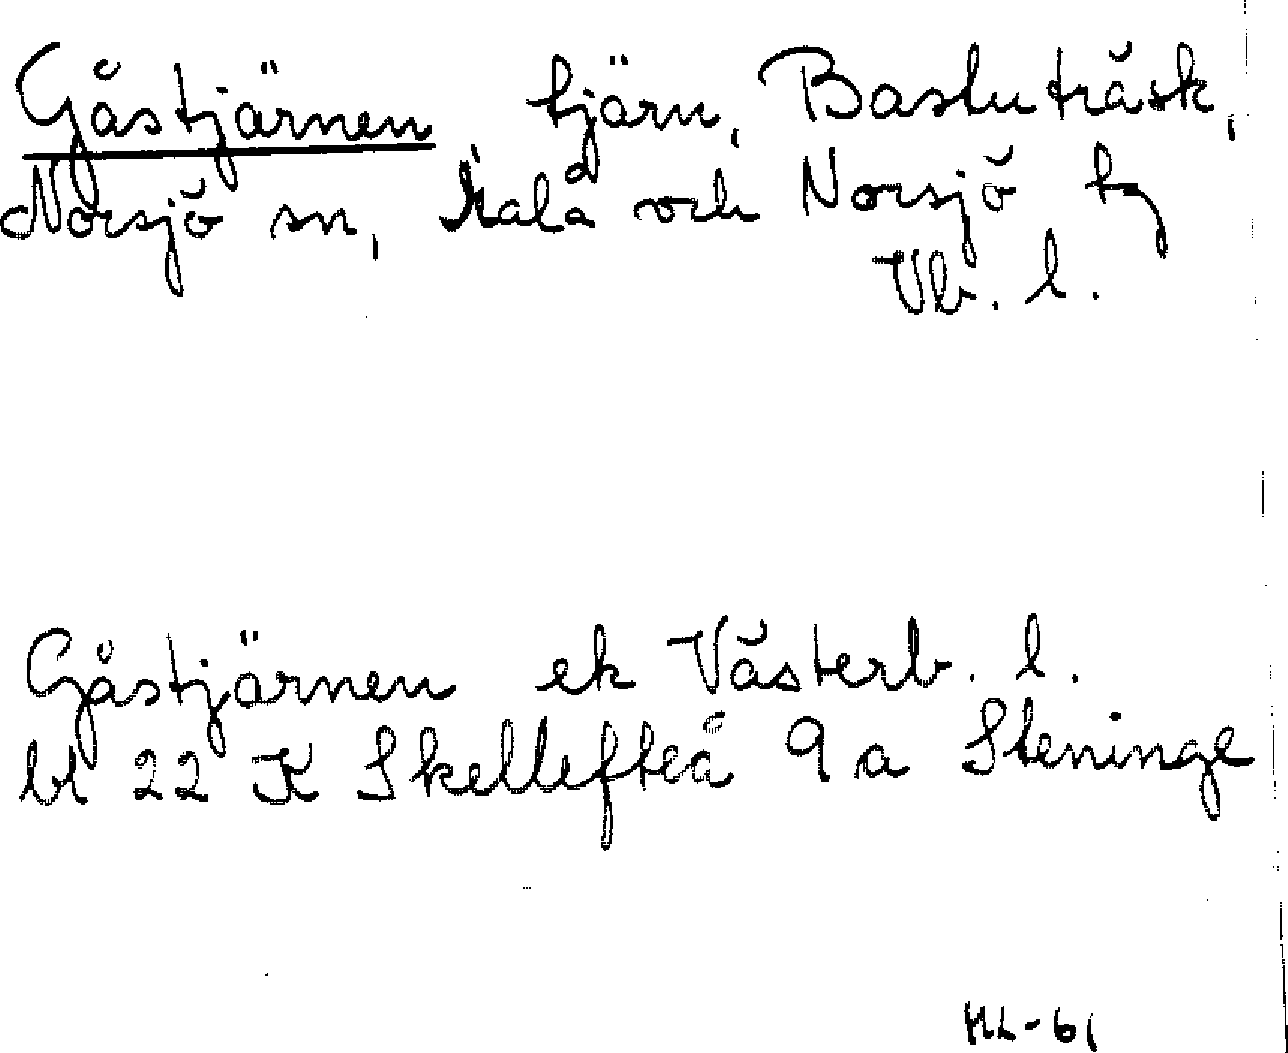 Gåstjärnen tjärn, Bastuträsk,
Norsjö sn, Malå och Norsjö tg
Vb. l.
Gåstjärnen ek Västerb. l.
bl 22 K Skellefteå 9 a Steninge
HL-61